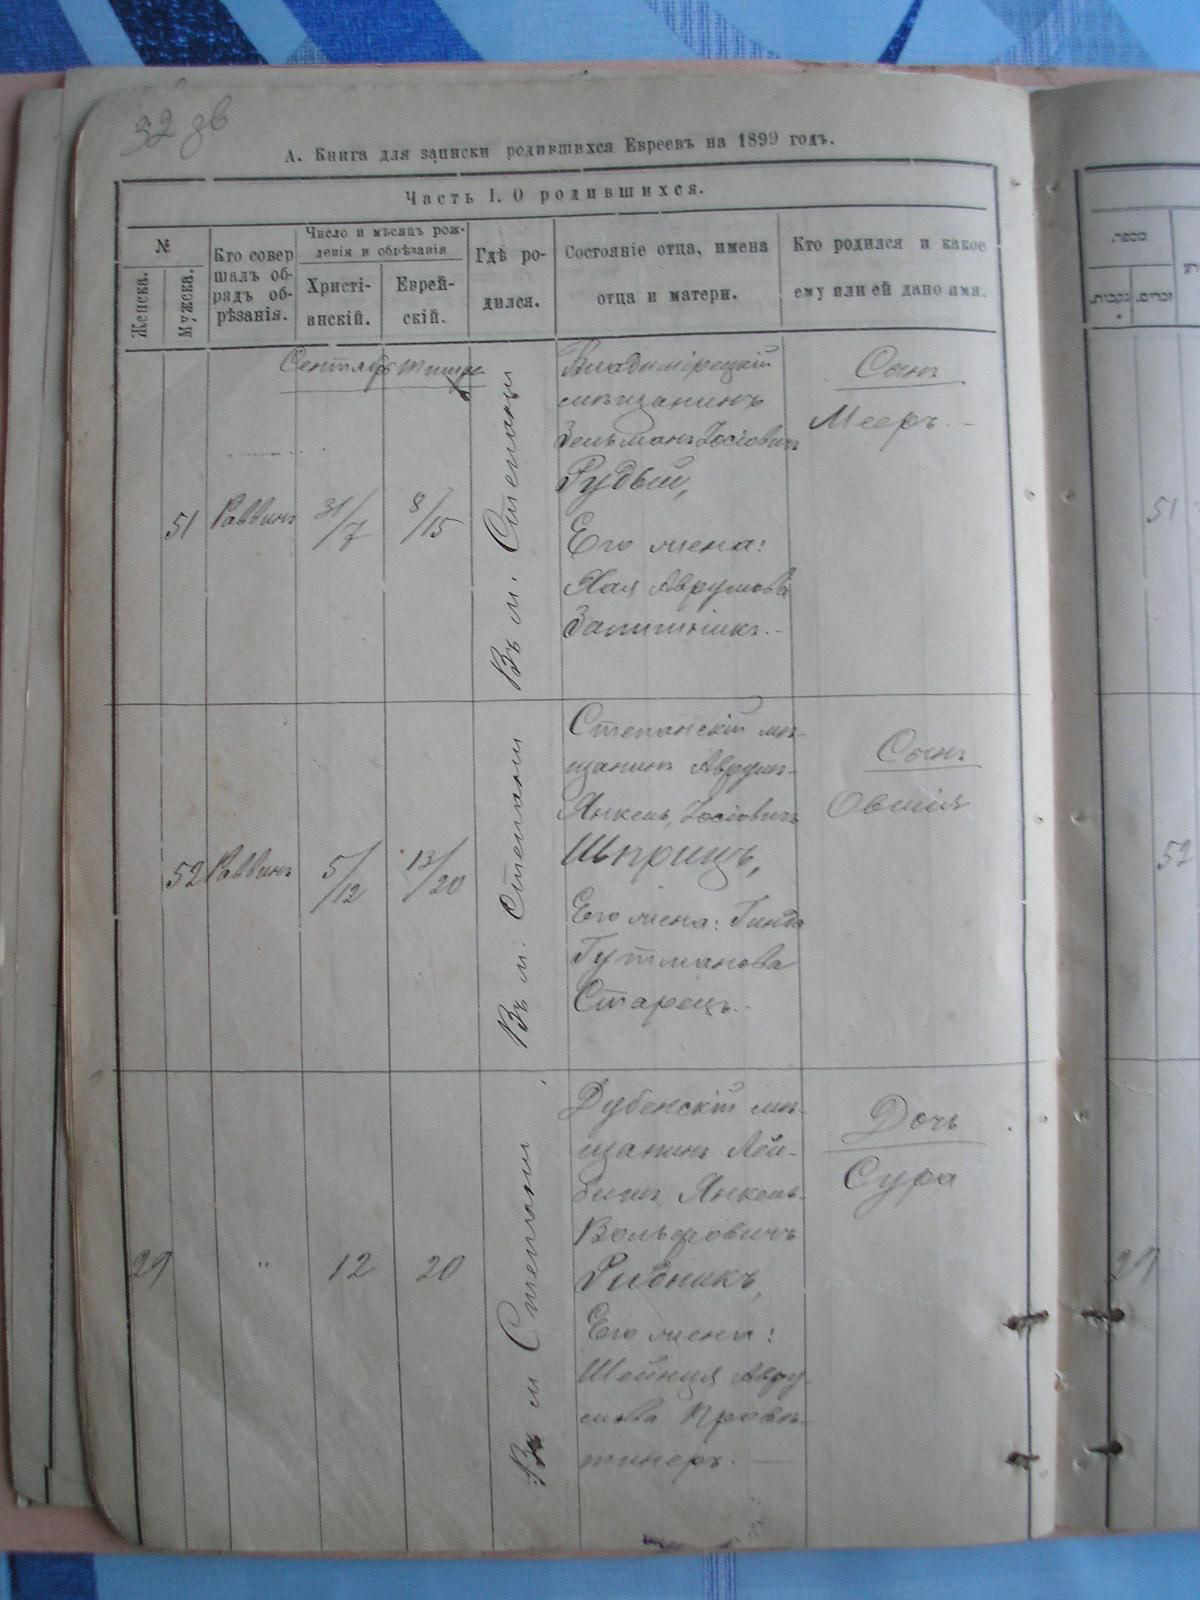 32 зв
А. Книга для записки родившихся Евреевъ на 1899 годъ.
Часть I. О родившихся.
№
Женска.
Мужска.
Кто совер
шалъ об-
рядъ об-
рѣзанія.
Число и мѣсяцъ рож-
денія и обрѣзанія
Христі-
анскій.
Еврей-
скій.
Гдѣ ро-
дился.
Состояніе отца, имена
отца и матери.
Кто родился и какое
ему или ей дано имя.
Сентябрь
51
Раввинъ
31/7
8/15
Въ м. Степани
Владимірецкій
мѣщанинъ
Зельманъ Іосіовичъ
Рудый,
Его жена:
Хая Аврумова
Сынъ
Мееръ.-
52
Раввинъ
5/12
13/20
Въ м. Степани
Степанскій мѣ-
щанинъ Аврум-
Янкель Іосіовичъ
Шприцъ,
Его жена: Гинда
Гутманова
Старецъ.-
Сынъ
Овшія
29
"
12
20
Въ м Степани
Дубенскій мѣ-
щанинъ Лей-
бишъ Янкель
Вольфовичъ
Рибникъ,
Его жена:
Шейндя Авру-
мова
Дочь
Сура
מספר.
נקבות.
זכרים.
51
52
29